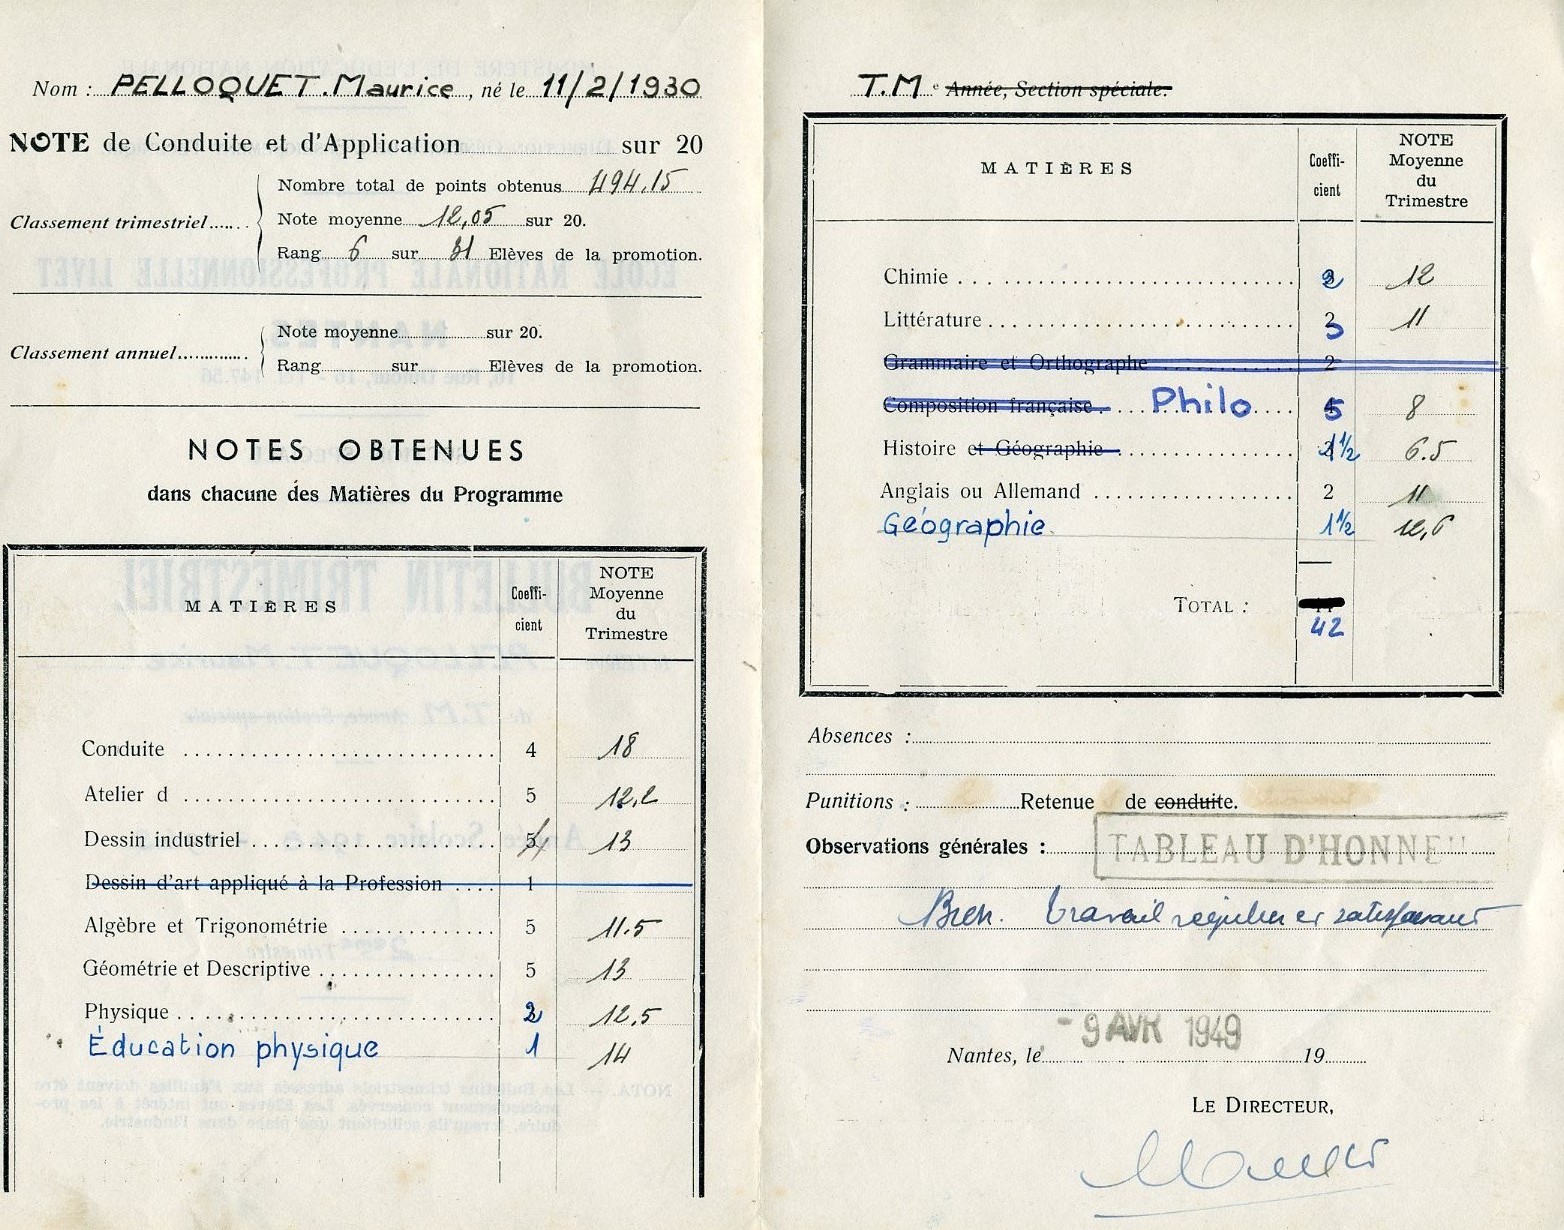 Nom : PELLOQUET. Maurice, né le 11/2/1930
NOTE de Conduite et d'Application sur 20
Classement trimestriel
Nombre total de points obtenus 494,15
Note moyenne 12,05 sur 20.
Rang 6 sur 31 Elèves de la promotion.
Classement annuel
Note moyenne sur 20.
Rang sur Elèves de la promotion.
NOTES OBTENUES
dans chacune des Matières du Programme
MATIÈRES Coeffi-cient NOTE Moyenne du Trimestre
Conduite 4 18
Atelier d 5 12,2
Dessin industriel 4 13
Dessin d'art appliqué à la Profession 1
Algèbre et Trigonométrie 5 11.5
Géométrie et Descriptive 5 13
Physique 2 12,5
Éducation physique 1 14
T.M e Année, Section spéciale.
MATIÈRES Coeffi-cient NOTE Moyenne du Trimestre
Chimie 2 12
Littérature 3 11
Grammaire et Orthographe 2
Composition française. Philo 5 8
Histoire et Géographie 1½ 6.5
Anglais ou Allemand 2 11
Géographie 1½
TOTAL :
42
Absences :
Punitions : Retenue de conduite.
Observations générales : TABLEAU D'HONNEU
Bien. travail régulier et satisfaisant
Nantes, le - 9 AVR 1949 19
LE DIRECTEUR,